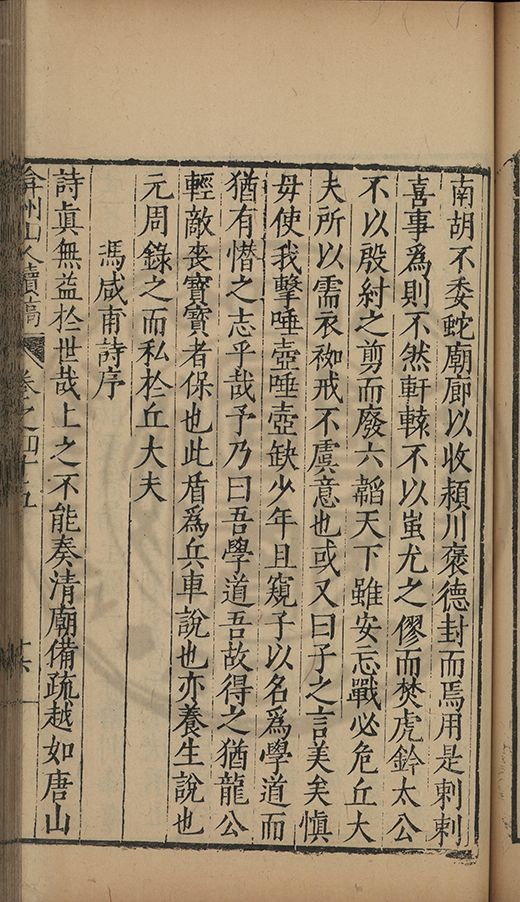 南胡不委蛇廟廊以收頴川褒德封而焉用是刺刺
喜事爲則不然軒轅不以蚩尤之僇而焚虎鈐太公
不以殷紂之剪而廢六韜天下雖安忘戰必危丘大
夫所以需衣袽戒不虞意也或又曰子之言美矣愼
毋使我擊唾壺唾壺缺少年且窺子以名爲學道而
猶有憯之志乎哉予乃曰吾學道吾故得之猶龍公
輕敵喪寶寶者保也此盾爲兵車說也亦養生說也
元周錄之而私於丘大夫
馮咸甫詩序
詩眞無益於世哉上之不能奏清廟備疏越如唐山
弇州山人續稿 卷之四十五 十六